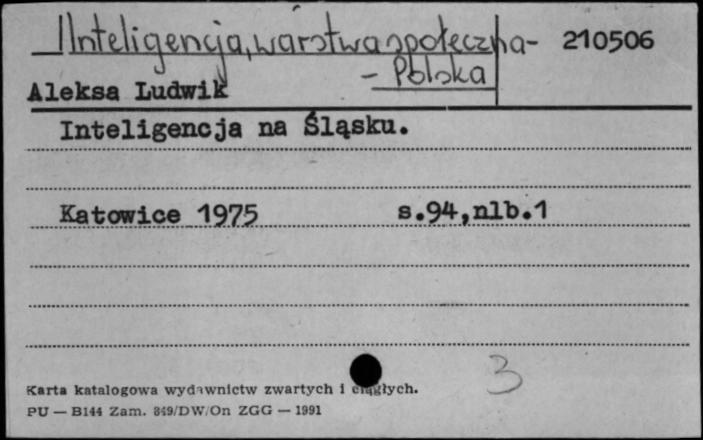 Inteligencja, warstwa społeczna- 210506
- Polska
Aleksa Ludwik
Inteligencja na Śląsku.
Katowice 1975 s.94,nlb.1
3
Karta katalogowa wydawnictw zwartych i ciągłych.
PU — B144 Zam. 849/DW/On ZGG — 1991